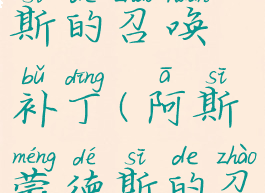 斯的召唤
bǔ dīng ā sī
补丁(阿斯
méng dé sī de zhào
蒙德斯的召